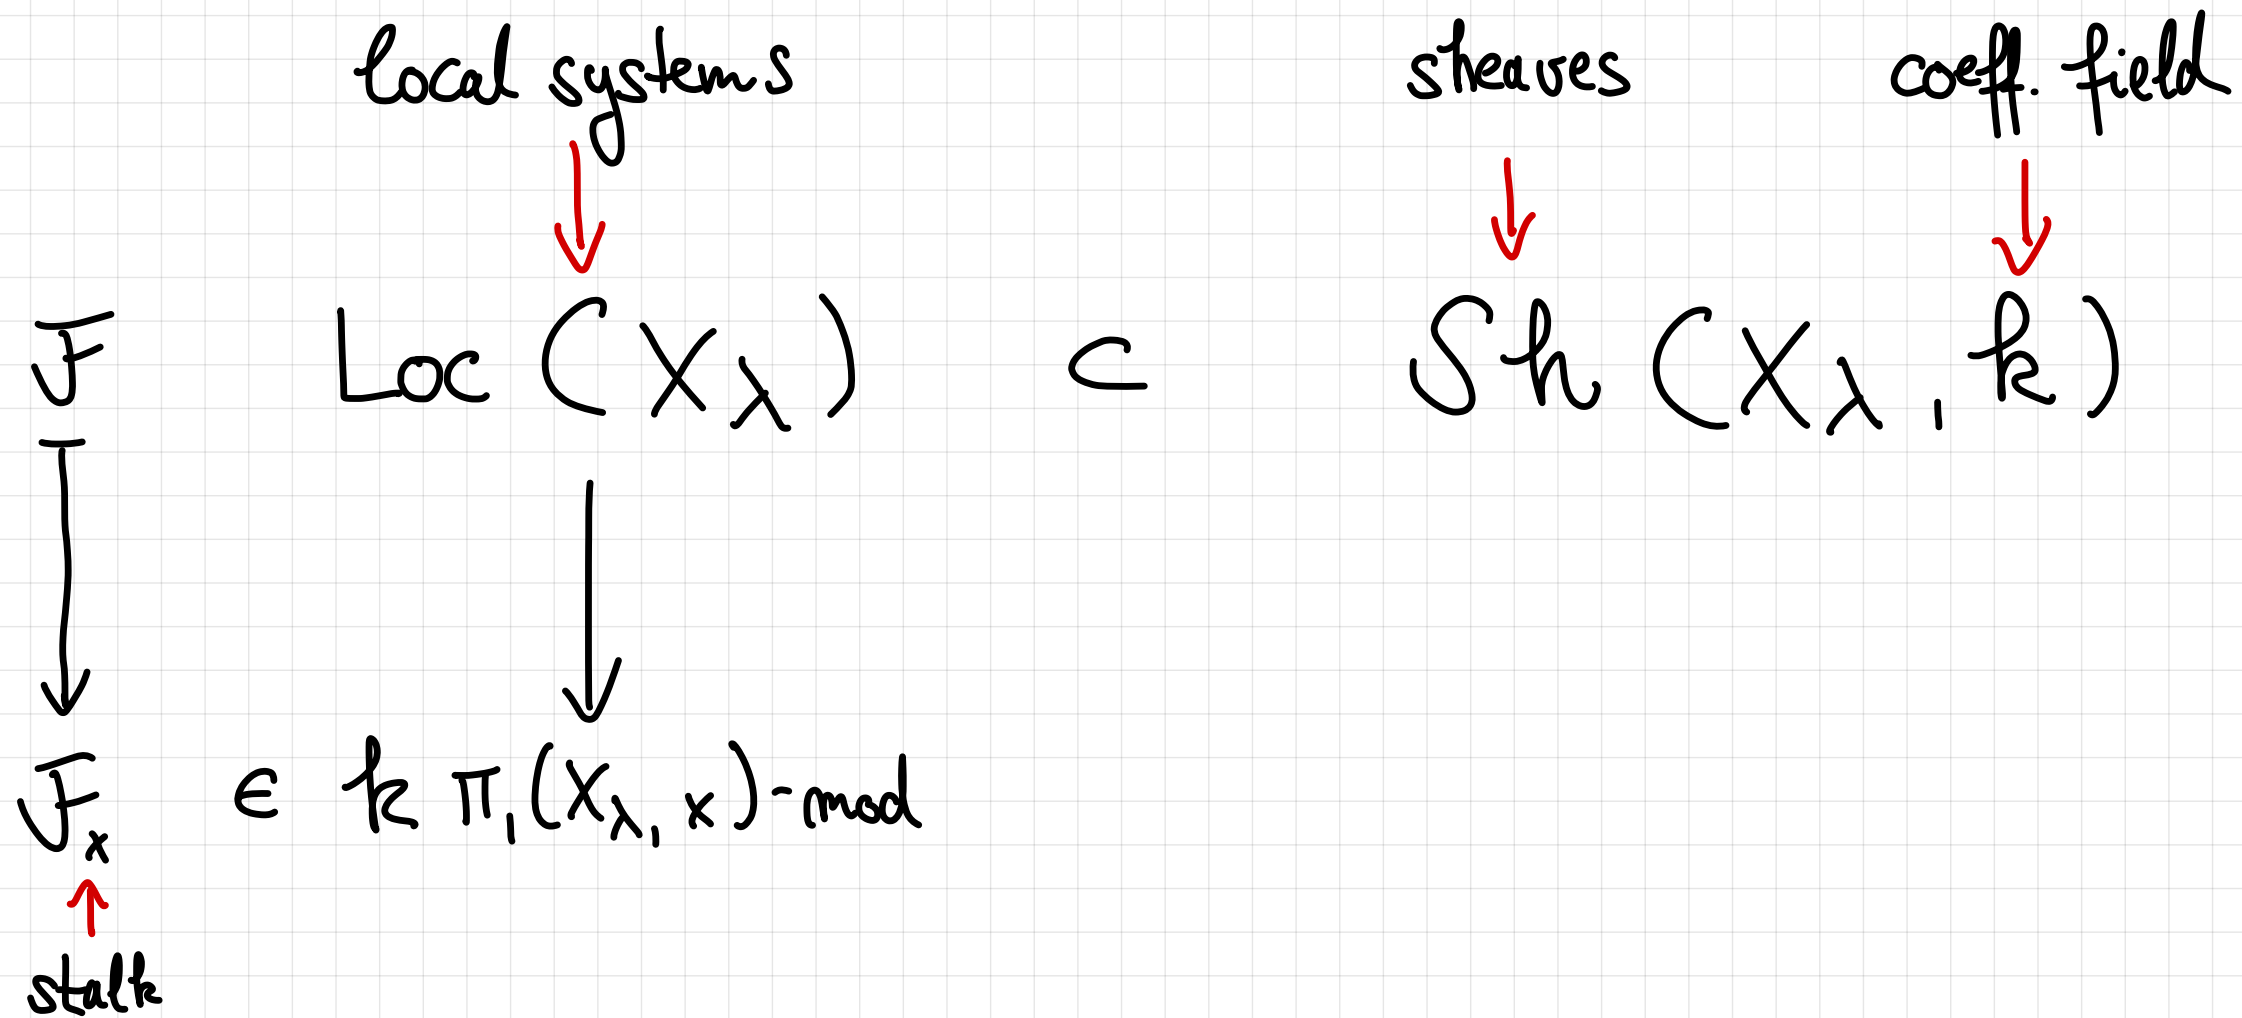 local systems sheaves coeff. field
F Loc (X_λ) ⊂ Sh (X_λ, k)
F_x ∈ k π_1(X_λ, x)-mod
stalk